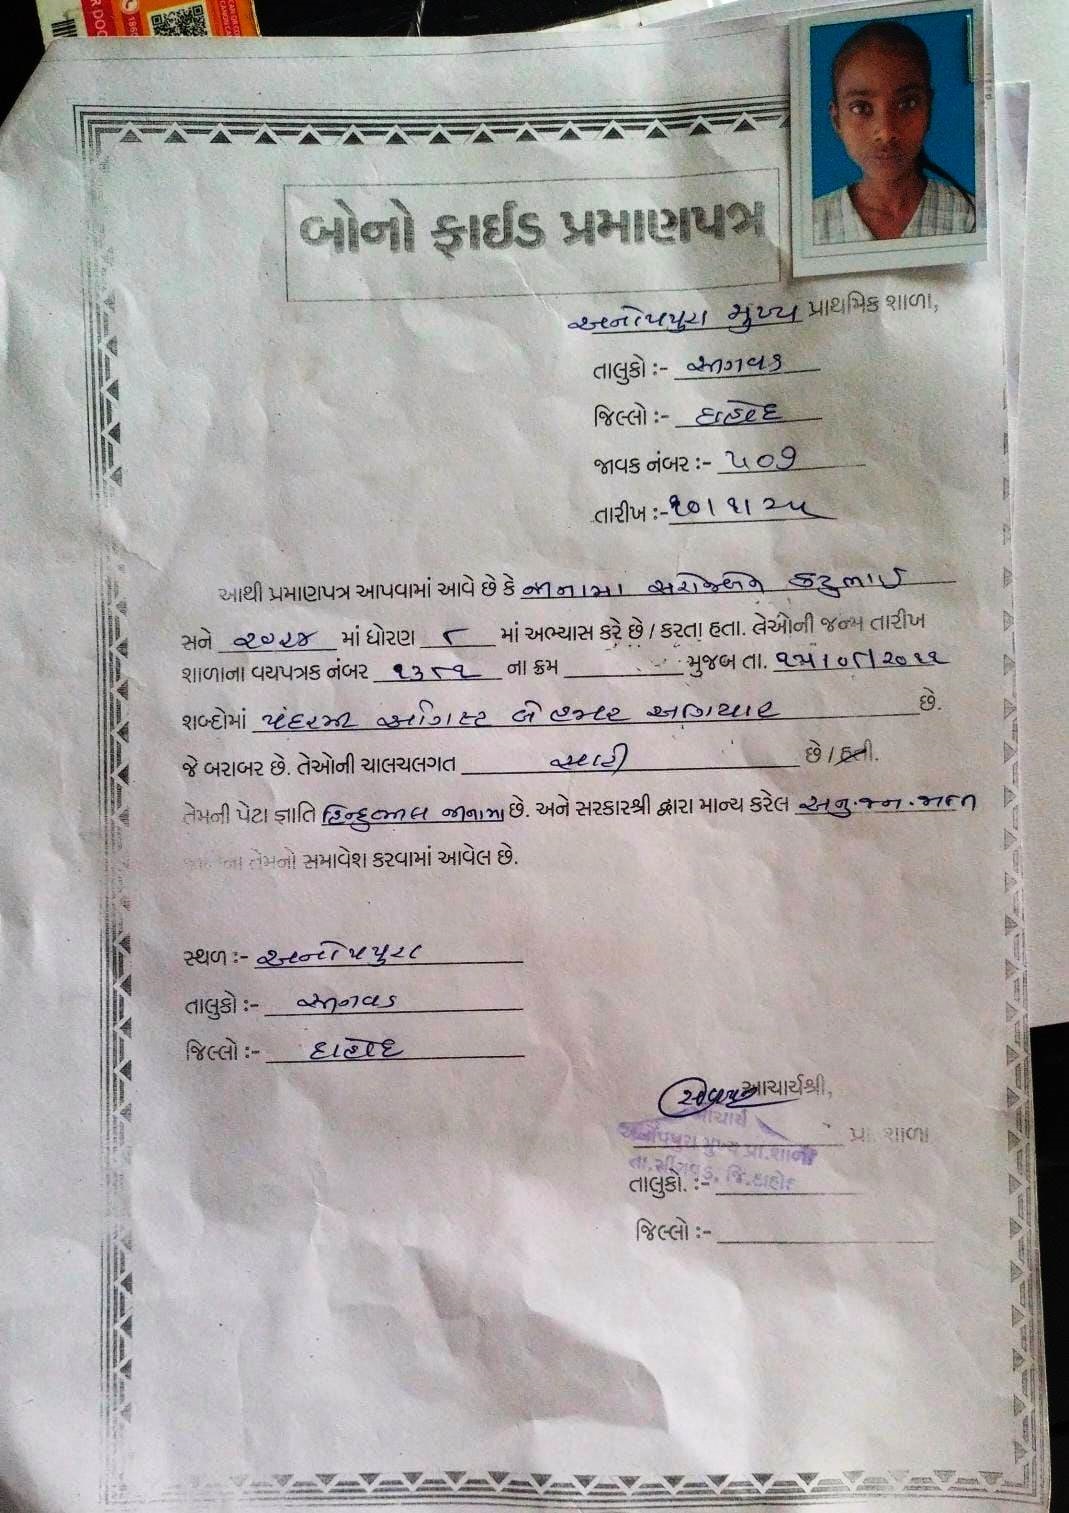 બોનો ફાઈડ પ્રમાણપત્ર
અનોપપુરા મુખ્ય પ્રાથમિક શાળા,
તાલુકો :-
જિલ્લો :- દાહોદ
જાવક નંબર :- ૫૦૭
તારીખ :- ૧૦/૧/૨૫
આથી પ્રમાણપત્ર આપવામાં આવે છે કે
સને ૨૦૨૪ માં ધોરણ ૮ માં અભ્યાસ કરે છે / કરતા હતા. તેઓની જન્મ તારીખ
શાળાના વયપત્રક નંબર ૧૩૮૧ ના ક્રમ મુજબ તા. ૧૫/૦૮/૨૦૧૧
શબ્દોમાં પંદરમી ઓગસ્ટ બે હજાર અગિયાર છે.
જે બરાબર છે. તેઓની ચાલચલગત સારી છે / હતી.
તેમની પેટા જ્ઞાતિ છે. અને સરકારશ્રી દ્વારા માન્ય કરેલ અનુ.જન.જાતિ
તેમનો સમાવેશ કરવામાં આવેલ છે.
સ્થળ :- અનોપપુરા
તાલુકો :-
જિલ્લો :- દાહોદ
આચાર્યશ્રી,
પ્રા. શાળા
આચાર્ય
અનોપપુરા મુખ્ય પ્રા.શાળા
તા.સીંગવડ, જિ.દાહોદ
તાલુકો. :-
જિલ્લો :-